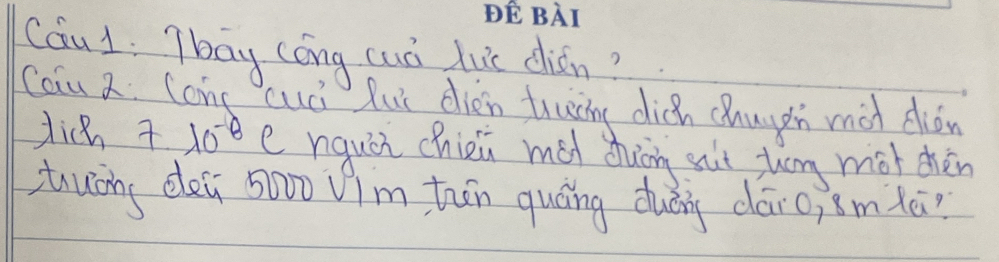 ĐỀ BÀI
Câu 1: Tbày công của lực điện?
Câu 2: Công của lực điện trường dịch chuyển một điện
tích 7.10⁻⁸ C ngược chiều một đường sức trong một điện
trường đều 5000 V/m trên quãng đường dài 0,8m là?